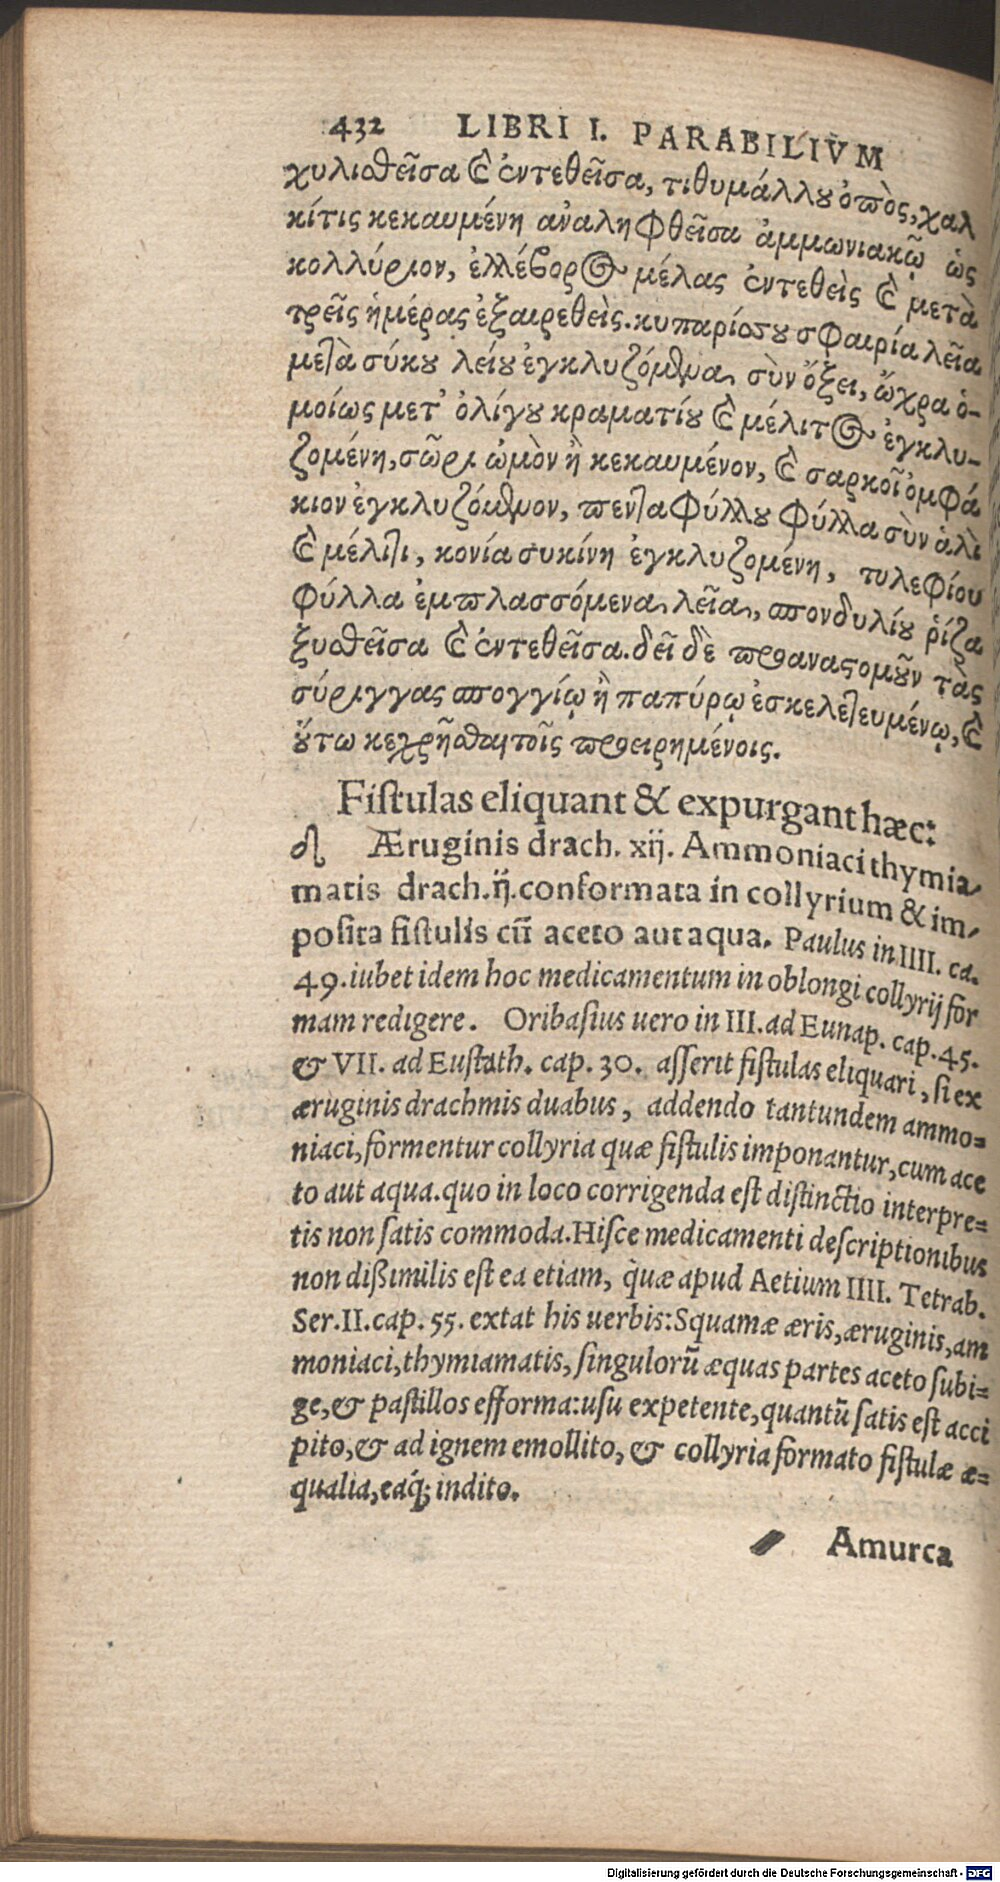 432 LIBRI I. PARABILIVM
χυλισθεῖσα καὶ ἐντεθεῖσα, τιθυμάλλου ὀπὸς, χαλ
κίτις κεκαυμένη ἀναληφθεῖσα ἀμμωνιακῷ ὡς
κολλύριον, ἑλλέβορος μέλας ἐντεθεὶς καὶ μετὰ
τρεῖς ἡμέρας ἐξαιρεθεὶς. κυπαρίσσου σφαιρία λεῖα
μετὰ σύκου λείου ἐγκλυζόμενα σὺν ὄξει, ὤχρα ὁ-
μοίως μετ' ὀλίγου κραματίου καὶ μέλιτος ἐγκλυ-
ζομένη, σῶρι ὠμὸν ἢ κεκαυμένον, καὶ σαρκοῖ ὀμφά
κιον ἐγκλυζόμενον, πενταφύλλου φύλλα σὺν ἁλὶ
καὶ μέλιτι, κονία συκίνη ἐγκλυζομένη, τηλεφίου
φύλλα ἐμπλασσόμενα λεῖα, σπονδυλίου ῥίζα
ξυσθεῖσα καὶ ἐντεθεῖσα. δεῖ δὲ προαναστομοῦν τὰς
σύριγγας σπογγίῳ ἢ παπύρῳ ἐσκελετευμένῳ, καὶ
οὕτω κεχρῆσθαι τοῖς προειρημένοις.
Fistulas eliquant & expurgant hæc:
♌ Æruginis drach. xij. Ammoniaci thymia-
matis drach. ij. conformata in collyrium & im-
posita fistulis cũ aceto aut aqua. Paulus in IIII. ca.
49. iubet idem hoc medicamentum in oblongi collyrij for
mam redigere. Oribasius uero in III. ad Eunap. cap. 45.
& VII. ad Eustath. cap. 30. asserit fistulas eliquari, si ex
æruginis drachmis duabus, addendo tantundem ammo=
niaci, formentur collyria quæ fistulis imponantur, cum ace
to aut aqua. quo in loco corrigenda est distinctio interpre=
tis non satis commoda. Hisce medicamenti descriptionibus
non dißimilis est ea etiam, quæ apud Aetium IIII. Tetrab.
Ser. II. cap. 55. extat his uerbis: Squamæ æris, æruginis, am
moniaci, thymiamatis, singulorũ æquas partes aceto subi=
ge, & pastillos efforma: usu expetente, quantũ satis est acci
pito, & ad ignem emollito, & collyria formato fistulæ æ=
qualia, eaq́; indito.
Amurca
Digitalisierung gefördert durch die Deutsche Forschungsgemeinschaft - DFG